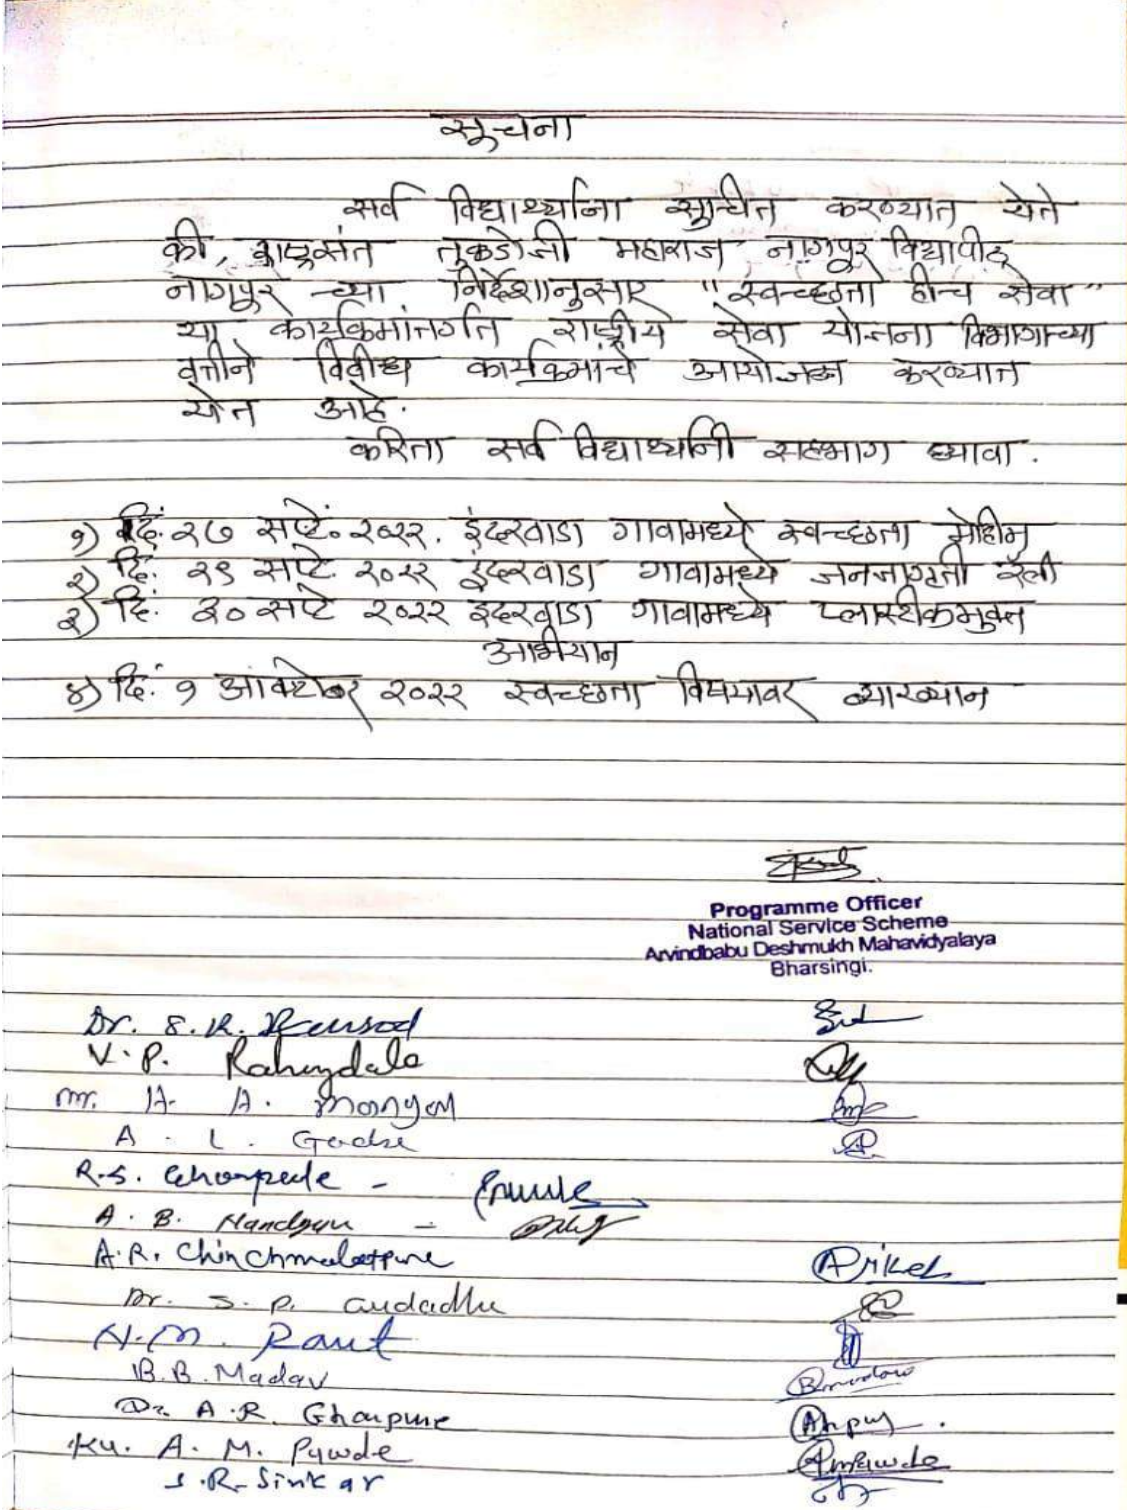 सूचना
सर्व विद्यार्थ्यांना सुचित करण्यात येते
की, राष्ट्रसंत तुकडोजी महाराज नागपूर विद्यापीठ
नागपूर च्या निर्देशानुसार "स्वच्छता हीच सेवा"
या कार्यक्रमांतर्गत राष्ट्रीय सेवा योजना विभागाच्या
वतीने विवीध कार्यक्रमाचे आयोजन करण्यात
येत आहे.
करिता सर्व विद्यार्थ्यांनी सहभाग घ्यावा.
१) दि. २७ सप्टें. २०२२. इंदरवाडा गावामध्ये स्वच्छता मोहीम
२) दि. २९ सप्टें. २०२२ इंदरवाडा गावामध्ये जनजागृती रॅली
३) दि. ३० सप्टे २०२२ इंदरवाडा गावामध्ये प्लास्टीकमुक्त
अभियान
४) दि. १ ऑक्टोबर २०२२ स्वच्छता विषयावर व्याख्यान
Programme Officer
National Service Scheme
Arvindbabu Deshmukh Mahavidyalaya
Bharsingi.
Dr. S. R.
V. P. Rahangdale
Mr. H. A.
A. L. Godse
R.S. Ghorpade -
A. B. -
A.R. Chinchmalatpure
Dr. S. P. Gudadhe
N. M. Raut
B.B. Madav
Dr. A.R. Ghorpure
Ku. A. M. Pawde Ampawde
S.R. Sirskar